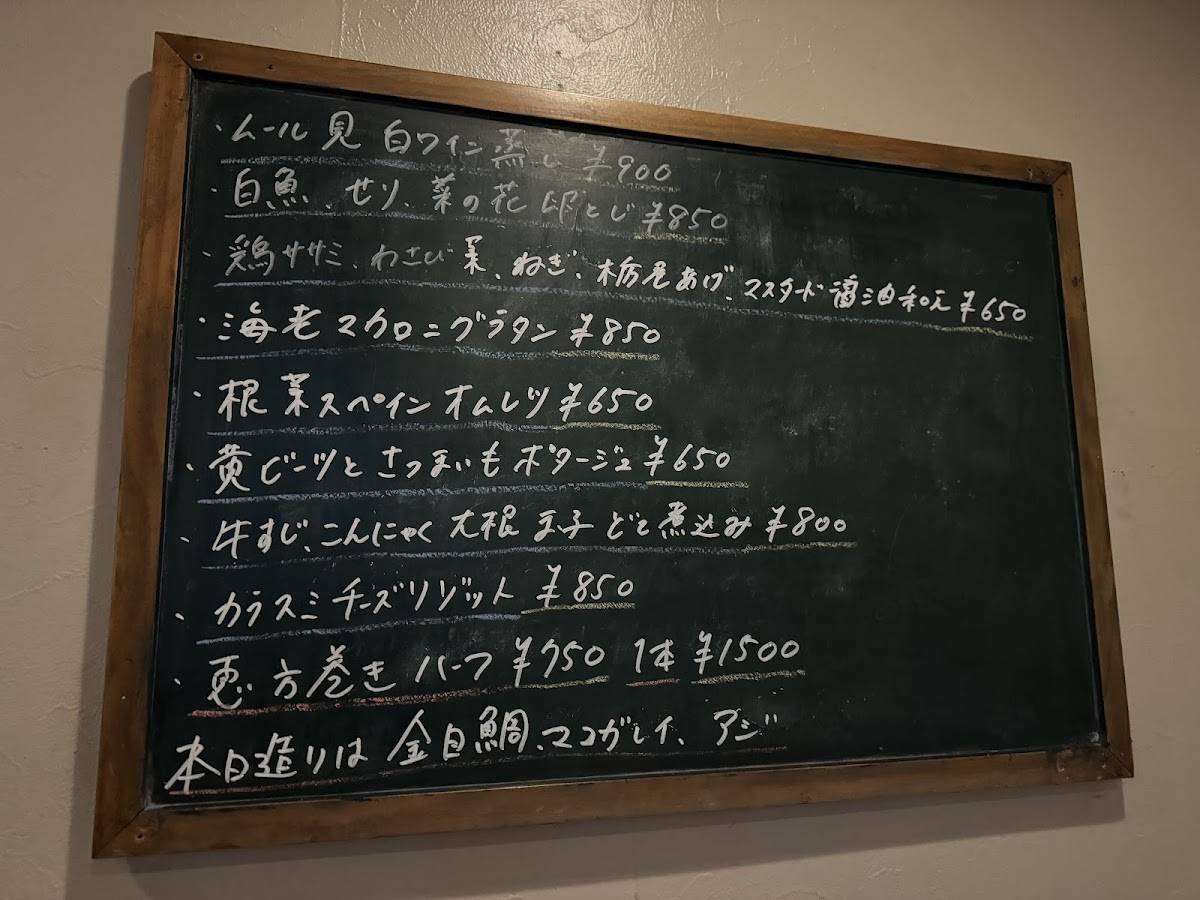 ・ムール貝 白ワイン蒸し ¥900
・白魚、せり、菜の花 卵とじ ¥850
・鶏ササミ、わさび菜、ねぎ、栃尾あげ、マスタード醤油和え ¥650
・海老マカロニグラタン ¥850
・根菜スペインオムレツ ¥650
・黄ビーツとさつまいもポタージュ ¥650
・牛すじ、こんにゃく 大根 玉子 どて煮込み ¥800
・カラスミチーズリゾット ¥850
・恵方巻き ハーフ ¥750 1本 ¥1500
本日造りは 金目鯛、マコガレイ、アジ